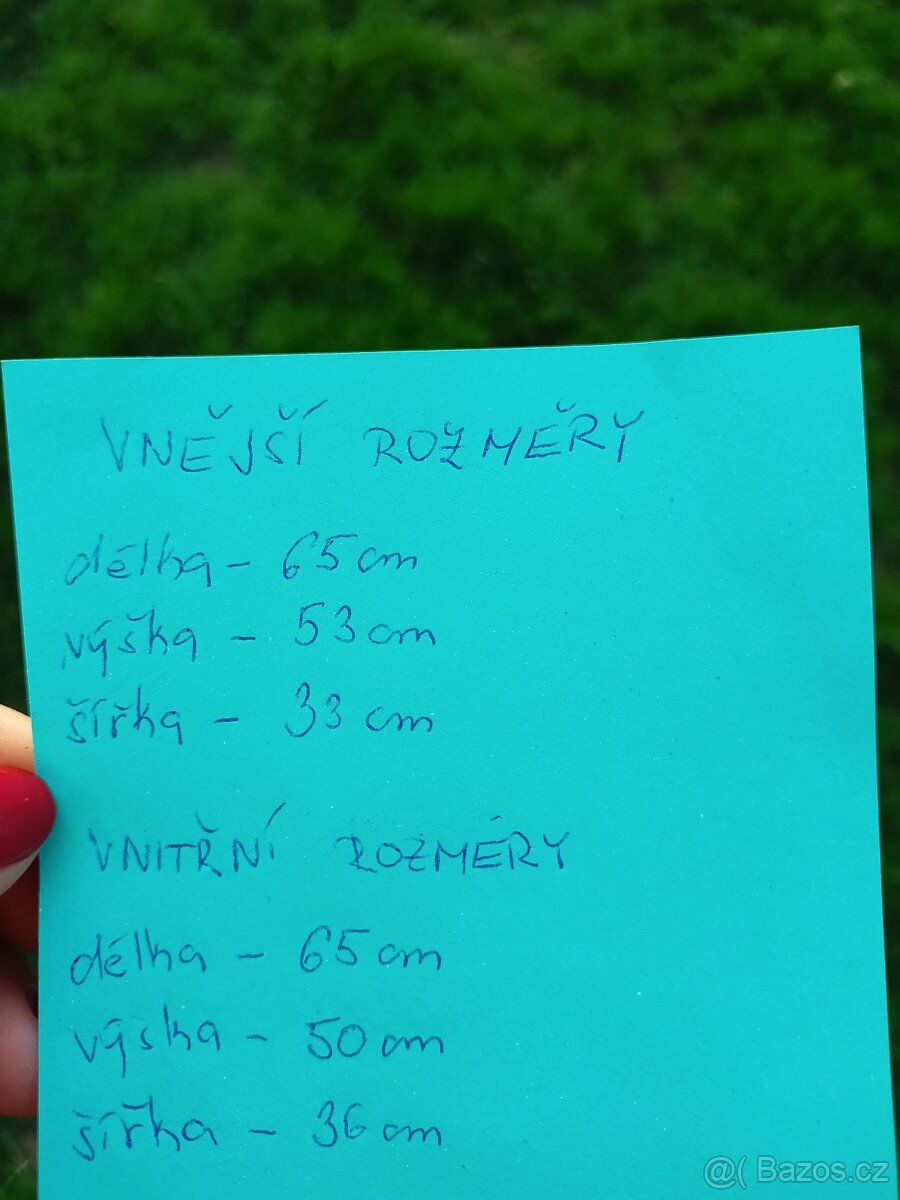 VNĚJŠÍ ROZMĚRY
délka - 65 cm
výška - 53 cm
šířka - 33 cm
VNITŘNÍ ROZMÉRY
délka - 65 cm
výska - 50 cm
šířka - 36 cm
@( Bazos.cz